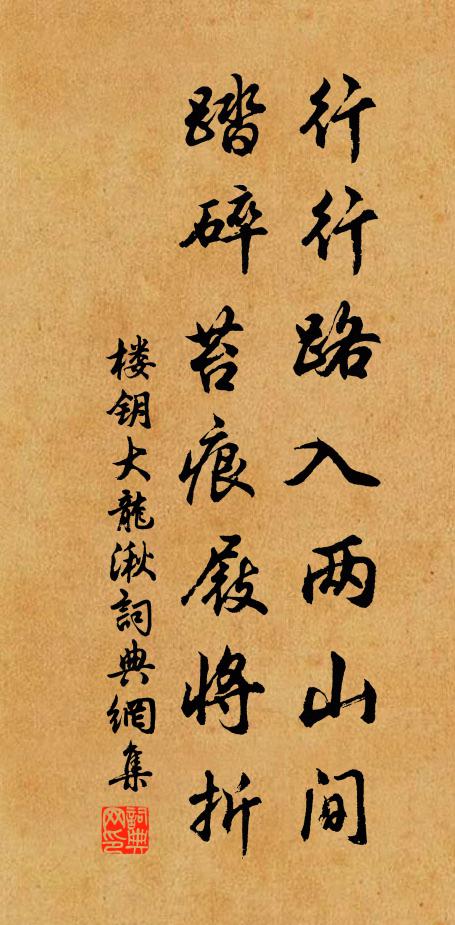 行行路入两山间
踏碎苔痕屐将折
楼钥大龍湫詞典網集
詞典网印